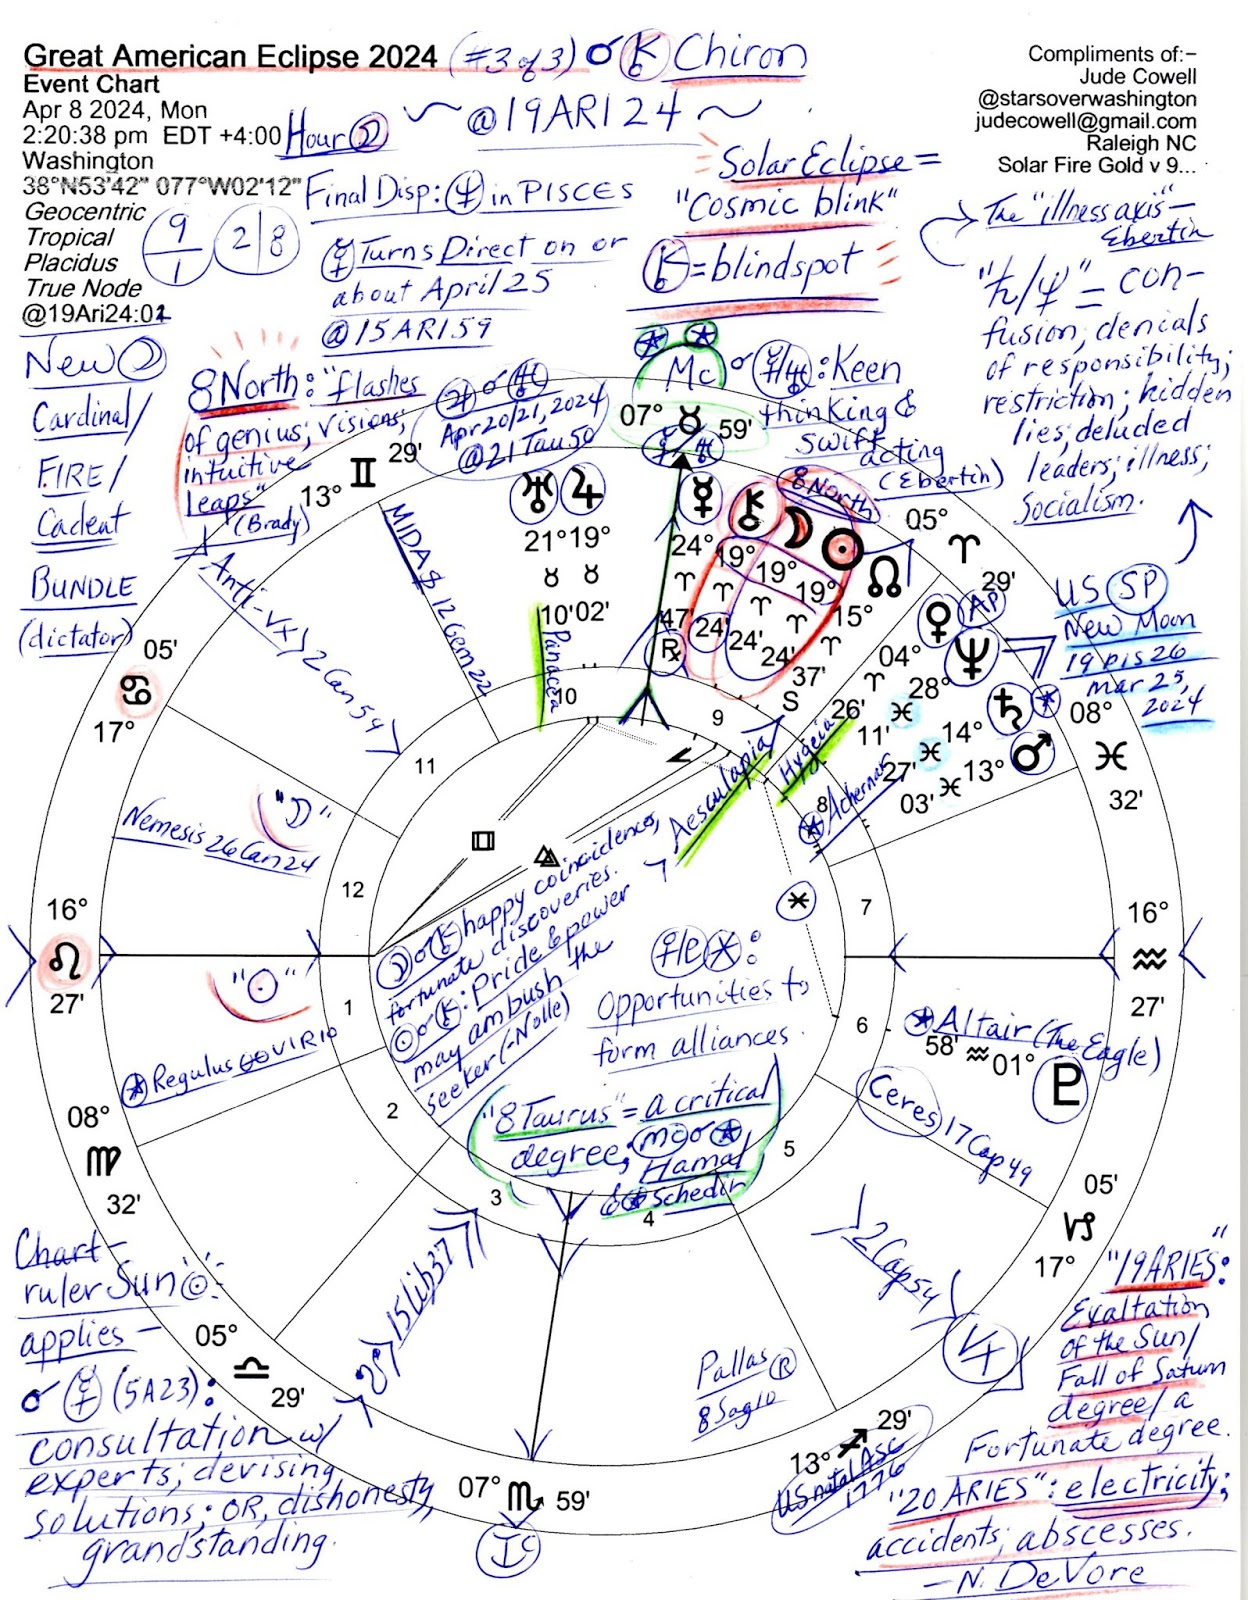 Great American Eclipse 2024 (#3 of 3) ☌ ⚷ Chiron
Event Chart
Apr 8 2024, Mon
2:20:38 pm EDT +4:00 Hour ☽
~ @19ARI24 ~
Washington
38°N53'42" 077°W02'12"
Geocentric
Tropical
Placidus
True Node
@19Ari24:01
9/1
2|8
Compliments of:-
Jude Cowell
@starsoverwashington
judecowell@gmail.com
Raleigh NC
Solar Fire Gold v 9...
Final Disp: ♆ in PISCES
☿ Turns Direct on or
about April 25
@15ARI59
Solar Eclipse =
"Cosmic blink"
⚷ = blindspot
The "illness axis" -
Ebertin
"♄/♆" = con-
fusion; denials
of responsibility;
restriction; hidden
lies; deluded
leaders; illness;
Socialism.
US SP
New Moon
19 pis 26
mar 25,
2024
New ☽
Cardinal/
FIRE/
Cadent
BUNDLE
(dictator)
8 North: "flashes
of genius; visions;
intuitive
leaps"
(Brady)
♃ ☌ ♅
Apr 20/21, 2024
@21Tau50
Mc ☌ ☿/♅: Keen
thinking &
swift
acting
(Ebertin)
8 North
07° ♉ 59'
☿/♅
13° ♊ 29'
05° ♈ 29'
08° ♓ 32'
16° ♒ 27'
05' ♑ 17°
13° ♐ 29'
07° ♏ 59'
05° ♎ 29'
08° ♍ 32'
16° ♌ 27'
05' ♋ 17°
♅ 21° ♉ 10'
♃ 19° ♉ 02'
☿ 24° ♈ 47' ℞
⚷ 19° ♈ 24'
☽ 19° ♈ 24'
☉ 19° ♈ 24'
☊ 15° ♈ 37' S
♀ 04° ♈ 26'
AP
♆ 28° ♓ 11'
♄ 14° ♓ 27'
♂ 13° ♓ 03'
58' ♒ 01° ♇
Anti-Vx 2 Can 54
MIDAS 12 Gem 22
Panacea
Aesculapia
Hygeia
Achernar
Nemesis 26 Can 24
"☽"
"☉"
Regulus 00 VIR 10
Altair (The Eagle)
Ceres 17 Cap 49
2 Cap 54
Vx
Pallas ℞
8 Sag 10
US natal Asc
1776
☋ 15 Lib 37
Ic
1
2
3
4
5
6
7
8
9
10
11
12
☽ ☌ ⚷ happy coincidences,
fortunate discoveries.
☉ ☌ ⚷: Pride & power
may ambush the
seeker (-Nolle)
Opportunities to
form alliances.
"8 Taurus" = a critical
degree; mc ☌
Hamal
& Schedir
Chart-
ruler Sun ☉:
applies -
☌ ☿ (5A23):
consultation w/
experts; devising
solutions; OR, dishonesty,
grandstanding.
"19 ARIES":
Exaltation
of the Sun/
Fall of Saturn
degree/ a
Fortunate degree.
"20 ARIES": electricity;
accidents; abscesses.
- N. DeVore